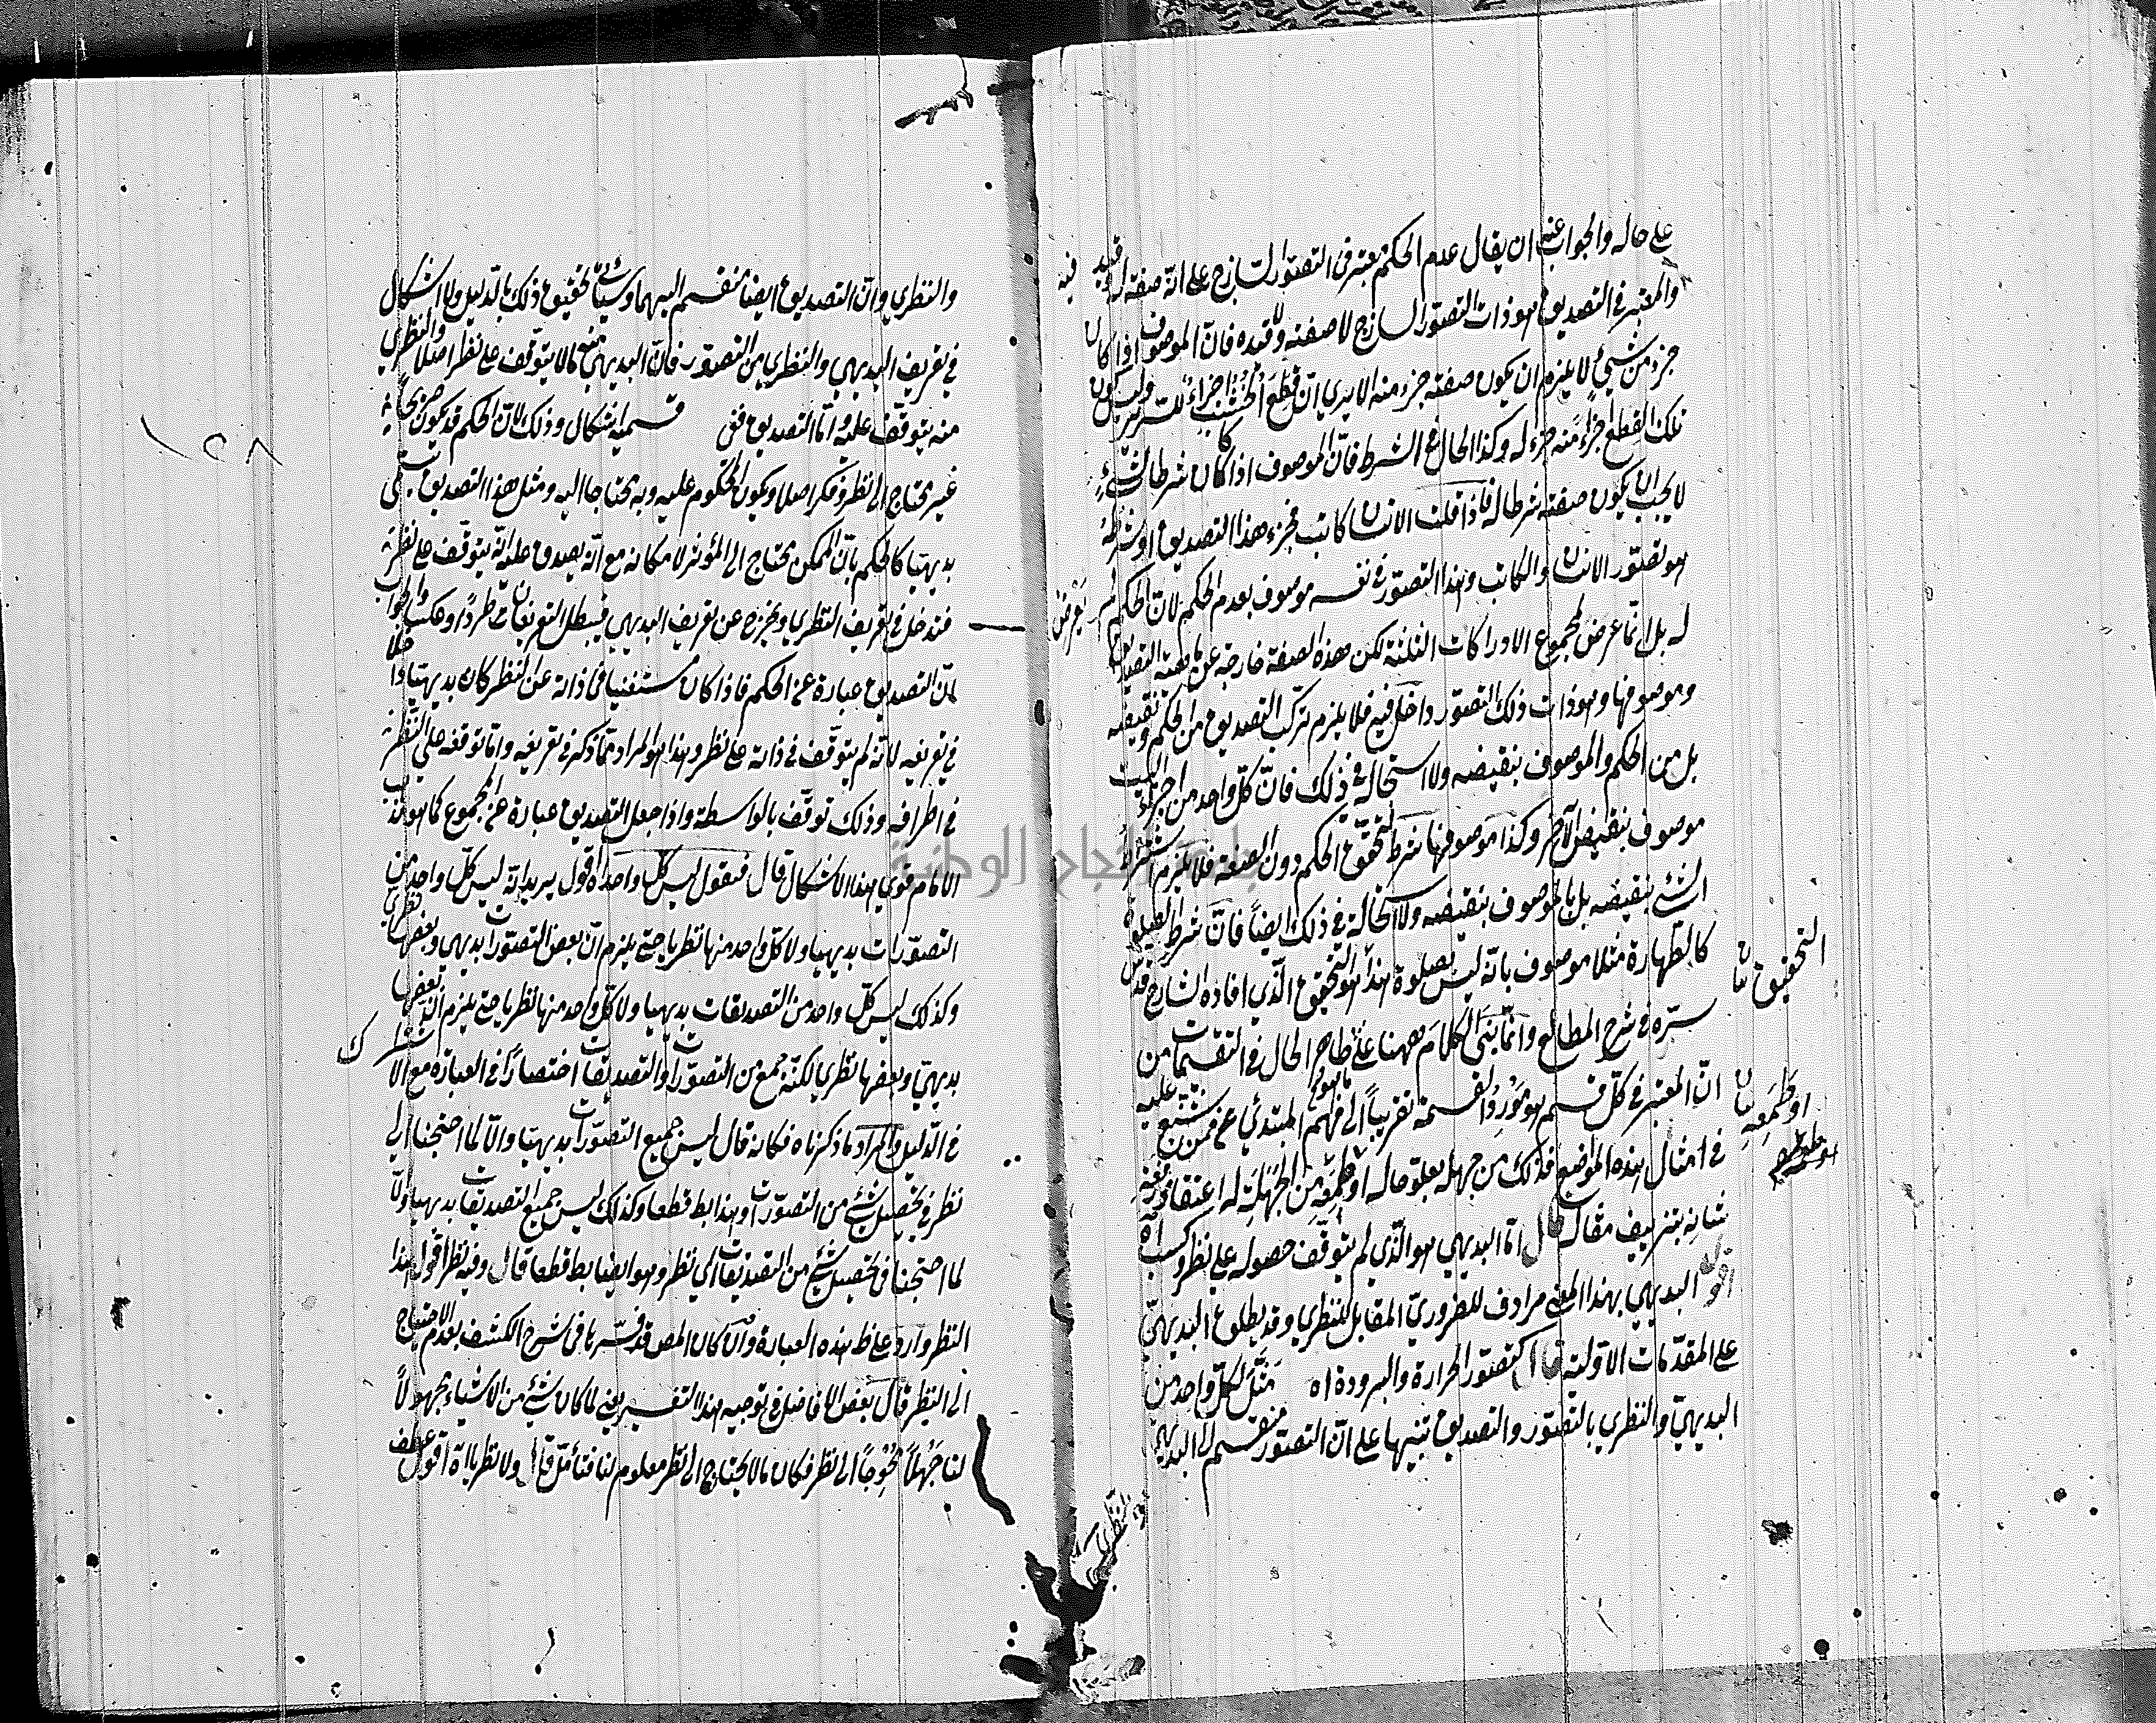 على حاله والجواب عنه ان يقال عدم الحكم معتبر في التصور الساذج على انه صفة له وقيد فيه
والمعتبر في التصديق هو ذات التصور الساذج لا صفته ولا قيده فان الموصوف اذا كان
جزء من شيئ لا يلزم ان يكون صفته جزء منه الا يرى ان قطع الخشب اجزاء للسرير وليس كون
تلك القطع جزء منه جزء له وكذا الحال في الشرط فان الموصوف اذا كان شرطا لشئ
لا يجب ان يكون صفته شرطا له فاذا قلت الانسان كاتب فجزء هذا التصديق او شرطه
هو تصور الانسان والكاتب وهذا التصور في نفسه موصوف بعدم الحكم لان الحكم لم يعرض
له بل انما عرض لمجموع الادراكات الثلثة لكن هذه الصفة خارجة عن ماهية التصديق
وموصوفها وهو ذات ذلك التصور داخل فيه فلا يلزم تركب التصديق من الحكم ونقيضه
بل من الحكم والموصوف بنقيضه ولا استحالة في ذلك فان كل واحد من اجزاء البيت
موصوف بنقيض الآخر وكذا موصوفها شرط لتحقق الحكم دون الصفة فلا يلزم اشتراط
الشئ بنقيضه بل بالموصوف بنقيضه ولا استحالة في ذلك ايضا فان شرط الصلوة
كالطهارة مثلا موصوف بانه ليس بصلوة هذا هو التحقيق الذي افاده الشارح قدس
سره في شرح المطالع وانما بنى الكلام ههنا على ظاهر الحال في التقسيمات من
ان المعتبر في كل قسم هو مورد القسمة تقريبا الى فهم المبتدئ عن فمن شنع عليه
في امثال هذه المواضع فذلك من جهله بعلو حاله او طمعه من الجهلة له اعتقاد
شانه بتزييف مقاله قال اما البديهي هو الذي لم يتوقف حصوله على نظر وكسب اه
اقول البديهي بهذا المعنى مرادف للضروري المقابل للنظري وقد يطلق البديهي
على المقدمات الاولية قال كتصور الحرارة والبرودة اه مثل لكل واحد من
البديهي والنظري بالتصور والتصديق تنبيها على ان التصور منقسم الى البديهي
التحقيق
او طمعه
والنظري وان التصديق ايضا منقسم اليهما وسيأتي تحقيق ذلك بالدليل ولا اشكال
في تعريف البديهي والنظري من التصور فان البديهي منه ما لا يتوقف على نظر اصلا والنظري
منه يتوقف عليه واما التصديق ففي قسميه اشكال وذلك لان الحكم قد يكون
غير محتاج الى نظر وفكر اصلا ويكون المحكوم عليه وبه محتاجا اليه ومثل هذا التصديق يسمى
بديهيا كالحكم بان الممكن محتاج الى المؤثر لامكانه مع انه يصدق عليه انه يتوقف على نظر
فيدخل في تعريف النظري ويخرج عن تعريف البديهي فيبطل التعريفان طردا وعكسا والجواب
لان التصديق عبارة عن الحكم فاذا كان مستغنيا في ذاته عن النظر كان بديهيا داخلا
في تعريفه لانه لم يتوقف في ذاته على نظر وهذا هو المراد مما ذكر في تعريفه واما توقفه على النظر
في اطرافه وذلك توقف بالواسطة واذا جعل التصديق عبارة عن المجموع كما هو مذهب
الامام قوي هذا الاشكال قال فنقول ليس كل واحد اه اقول يريد انه ليس كل واحد من
التصورات بديهيا ولا كل واحد منها نظريا حتى يلزم ان بعض التصورات بديهي وبعضها نظري
وكذلك ليس كل واحد من التصديقات بديهيا ولا كل واحد منها نظريا حتى يلزم ان بعضها
بديهي وبعضها نظري لكنه جمع من التصورات والتصديقات اختصارا في العبارة مع الاشتراك
في الدليل والمراد ما ذكرناه فكانه قال ليس جميع التصورات بديهيا والا لما احتجنا الى
نظر في تحصيل شيئ من التصورات وهذا بط قطعا وكذلك ليس جميع التصديقات بديهيا والا
لما احتجنا في تحصيل شيئ من التصديقات الى نظر وهو ايضا بط قطعا قال وفيه نظر اقول هذا
النظر وارد على ظ هذه العبارة وان كان المص قد فسرها في شرح الكشف بعدم الاحتياج
الى النظر قال بعض الافاضل في توجيه هذا التفسير يعني لما كان شيئ من الاشياء مجهولا
لنا جهلا محوجا الى نظر فكان ما لا يحتاج الى نظر معلوم لنا فتأمل قال ولا نظريا اه اقول عطف
١٥٨